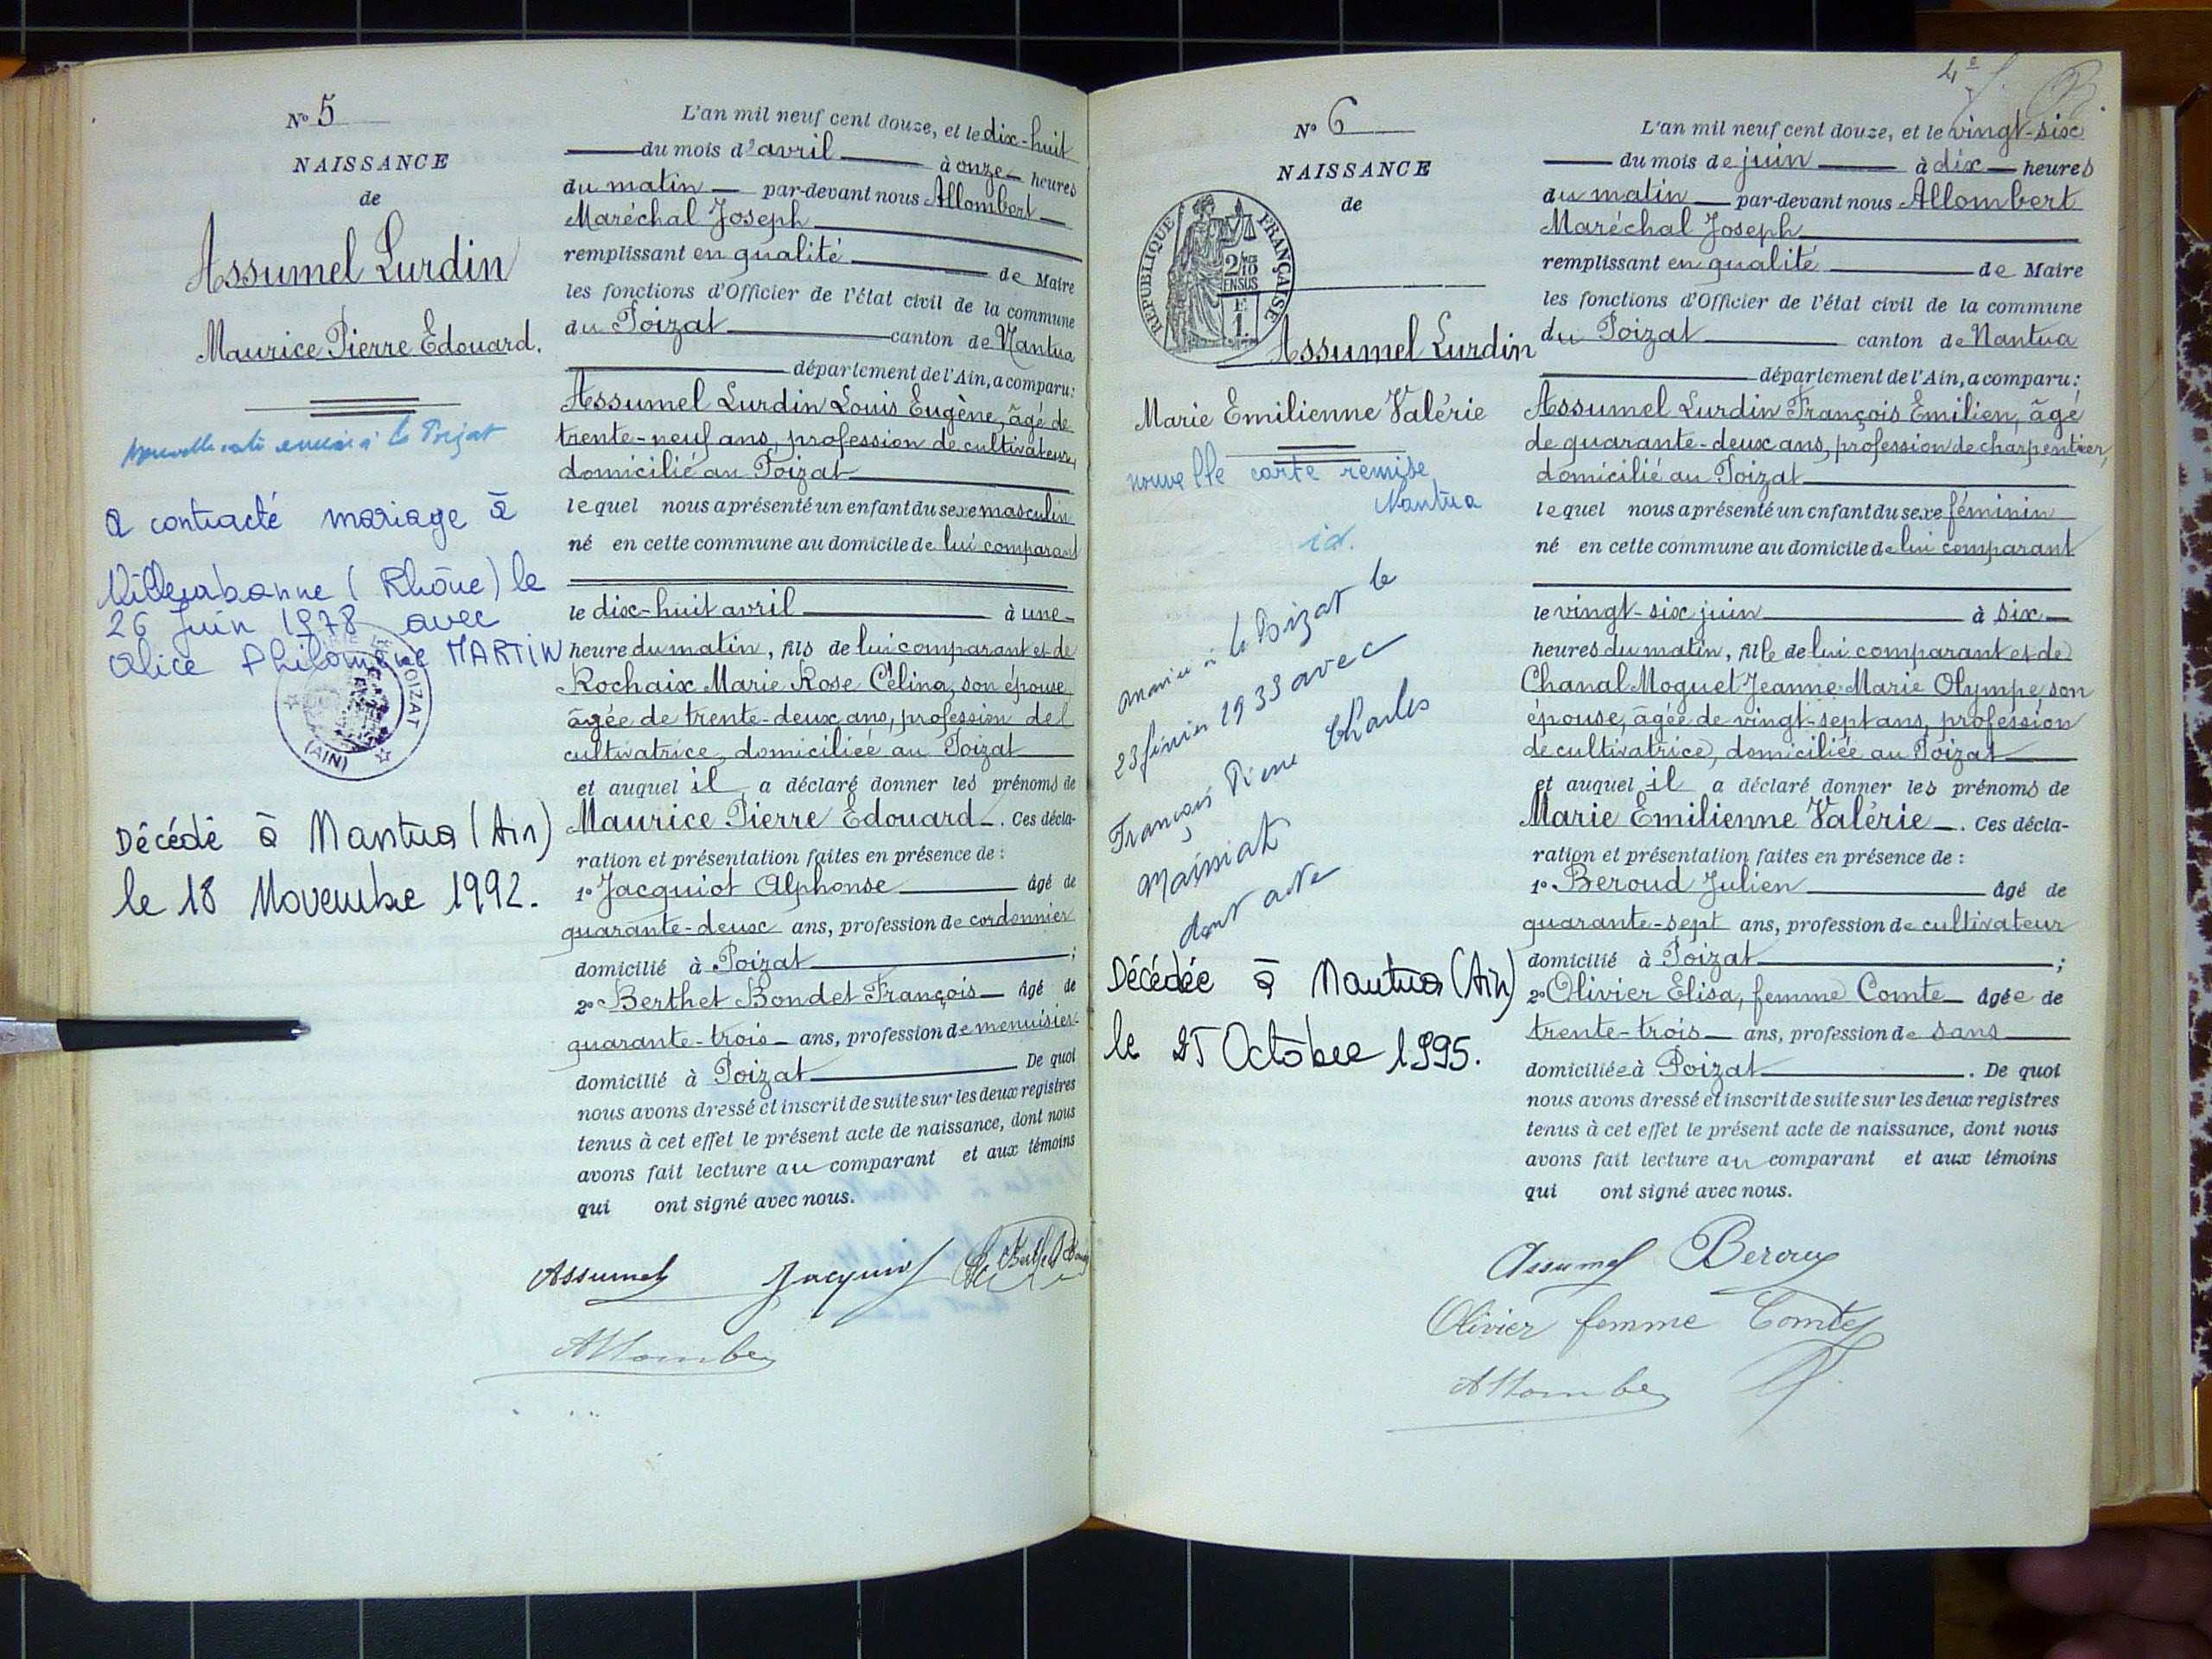 N° 5
NAISSANCE
de
Assumel Lurdin
Maurice Pierre Edouard.
Nouvelle carte envoyée à Le Poizat
a contracté mariage à
Villeurbanne (Rhône) le
26 Juin 1978 avec
Alice Philomène MARTIN
LE POIZAT
(AIN)
Décédé à Nantua (Ain)
le 18 Novembre 1992.
L'an mil neuf cent douze, et le dix-huit
du mois d'avril à onze heures
du matin par-devant nous Allombert
Maréchal Joseph
remplissant en qualité de Maire
les fonctions d'Officier de l'état civil de la commune
du Poizat canton de Nantua
département de l'Ain, a comparu:
Assumel Lurdin Louis Eugène, âgé de
trente-neuf ans, profession de cultivateur,
domicilié au Poizat
lequel nous a présenté un enfant du sexe masculin
né en cette commune au domicile de lui comparant
le dix-huit avril à une
heure du matin, fils de lui comparant et de
Rochaix Marie Rose Célina, son épouse
âgée de trente-deux ans, profession de
cultivatrice, domiciliée au Poizat
et auquel il a déclaré donner les prénoms de
Maurice Pierre Edouard. Ces décla-
ration et présentation faites en présence de :
1° Jacquiot Alphonse âgé de
quarante-deux ans, profession de cordonnier
domicilié à Poizat ;
2° Berthet Bondet François âgé de
quarante-trois ans, profession de menuisier
domicilié à Poizat De quoi
nous avons dressé et inscrit de suite sur les deux registres
tenus à cet effet le présent acte de naissance, dont nous
avons fait lecture au comparant et aux témoins
qui ont signé avec nous.
Assumel Jacquiot
Allombert
N° 6
NAISSANCE
de
REPUBLIQUE FRANÇAISE
2/10 EN SUS
E
1.
Assumel Lurdin
Marie Emilienne Valérie
nouvelle carte remise
Nantua
id.
mariée à Le Poizat le
23 février 1933 avec
François Pierre Charles
Maissiat
dont acte
Décédée à Nantua (Ain)
le 25 Octobre 1995.
4e
L'an mil neuf cent douze, et le vingt-six
du mois de juin à dix heures
du matin par-devant nous Allombert
Maréchal Joseph
remplissant en qualité de Maire
les fonctions d'Officier de l'état civil de la commune
du Poizat canton de Nantua
département de l'Ain, a comparu:
Assumel Lurdin François Emilien, âgé
de quarante-deux ans, profession de charpentier,
domicilié au Poizat
lequel nous a présenté un enfant du sexe féminin
né en cette commune au domicile de lui comparant
le vingt-six juin à six
heures du matin, fille de lui comparant et de
Chanal Moguet Jeanne Marie Olympe son
épouse, âgée de vingt-sept ans, profession
de cultivatrice, domiciliée au Poizat
et auquel il a déclaré donner les prénoms de
Marie Emilienne Valérie. Ces décla-
ration et présentation faites en présence de :
1° Beroud Julien âgé de
quarante-sept ans, profession de cultivateur
domicilié à Poizat ;
2° Olivier Elisa, femme Comte âgée de
trente-trois ans, profession de sans
domiciliée à Poizat . De quoi
nous avons dressé et inscrit de suite sur les deux registres
tenus à cet effet le présent acte de naissance, dont nous
avons fait lecture au comparant et aux témoins
qui ont signé avec nous.
Assumel Beroud
Olivier femme Comte
Allombert